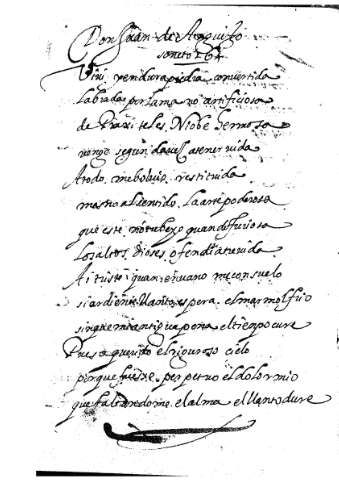 Don Juan de Arguijo
soneto 164
Viví, y en dura piedra convertida
labrada por la mano artificiosa
de Praxiteles, Niobe hermosa
vengo segunda vez a tener vida
A todo me bolvio restituida
mas no al sentido la arte poderosa
que este no tube yo quando furiosa
los altos dioses ofendi atrevida
Ai triste quan en vano me consuelo
si ardiente llanto espera el marmol frio
sin que mi antigua pena el tiempo cure
Pues a querido el riguroso cielo
porque fuese perpetuo el dolor mio
que faltandome el alma el llanto dure